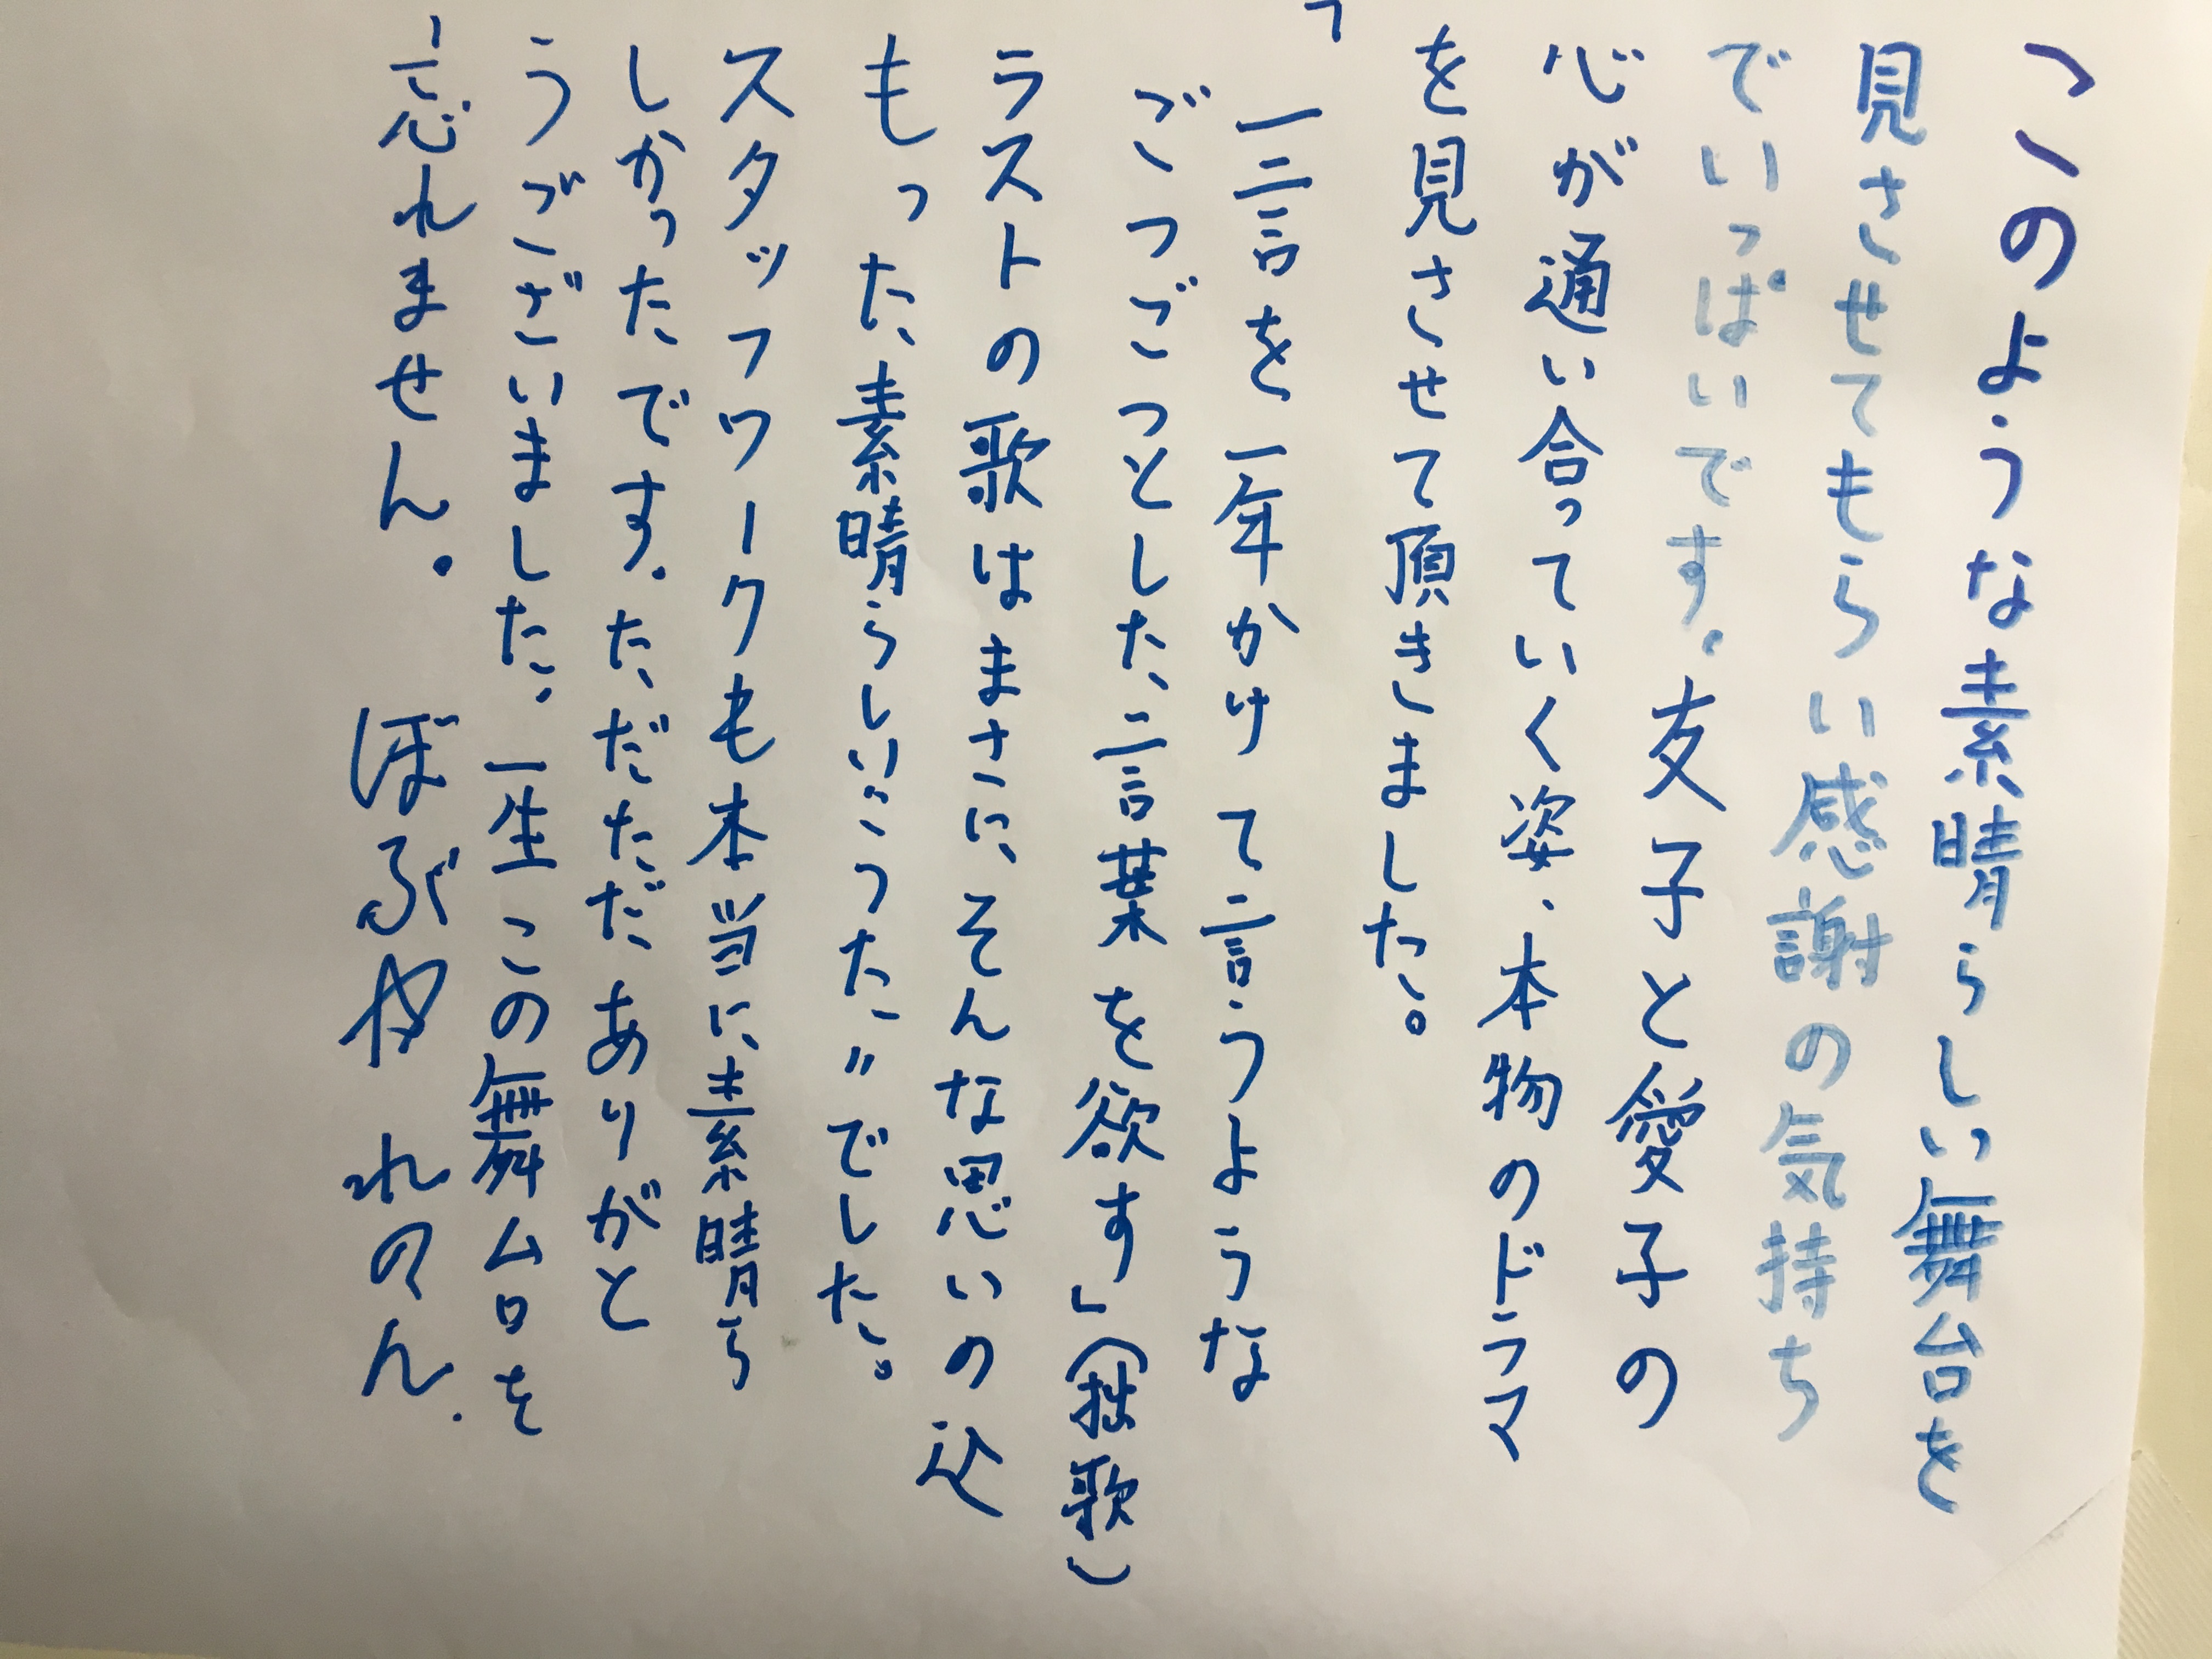 このような素晴らしい舞台を
見させてもらい感謝の気持ち
でいっぱいです。友子と愛子の
心が通い合っていく姿、本物のドラマ
を見させて頂きました。
「一言を一年かけて言うような
ごつごつとした言葉を欲す」(拙歌)
ラストの歌はまさに、そんな思いの込
もった素晴らしい"うた"でした。
スタッフワークも本当に素晴ら
しかったです。ただただありがと
うございました。一生この舞台を
忘れません。
れのん.